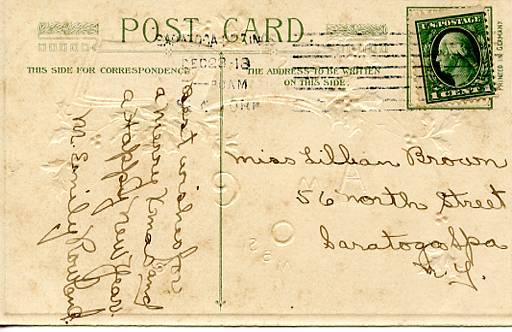 POST CARD
THIS SIDE FOR CORRESPONDENCE
THE ADDRESS TO BE WRITTEN
ON THIS SIDE.
SARATOGA SPRIN
DEC 23 13
AM
U.S. POSTAGE
1 CENT 1
PRINTED IN GERMANY
Best wishes for
a merry Xmas and
a Happy New Year.
M. Emily Rowland.
Miss Lillian Brown
56 North Street
Saratoga Spa
N.Y.